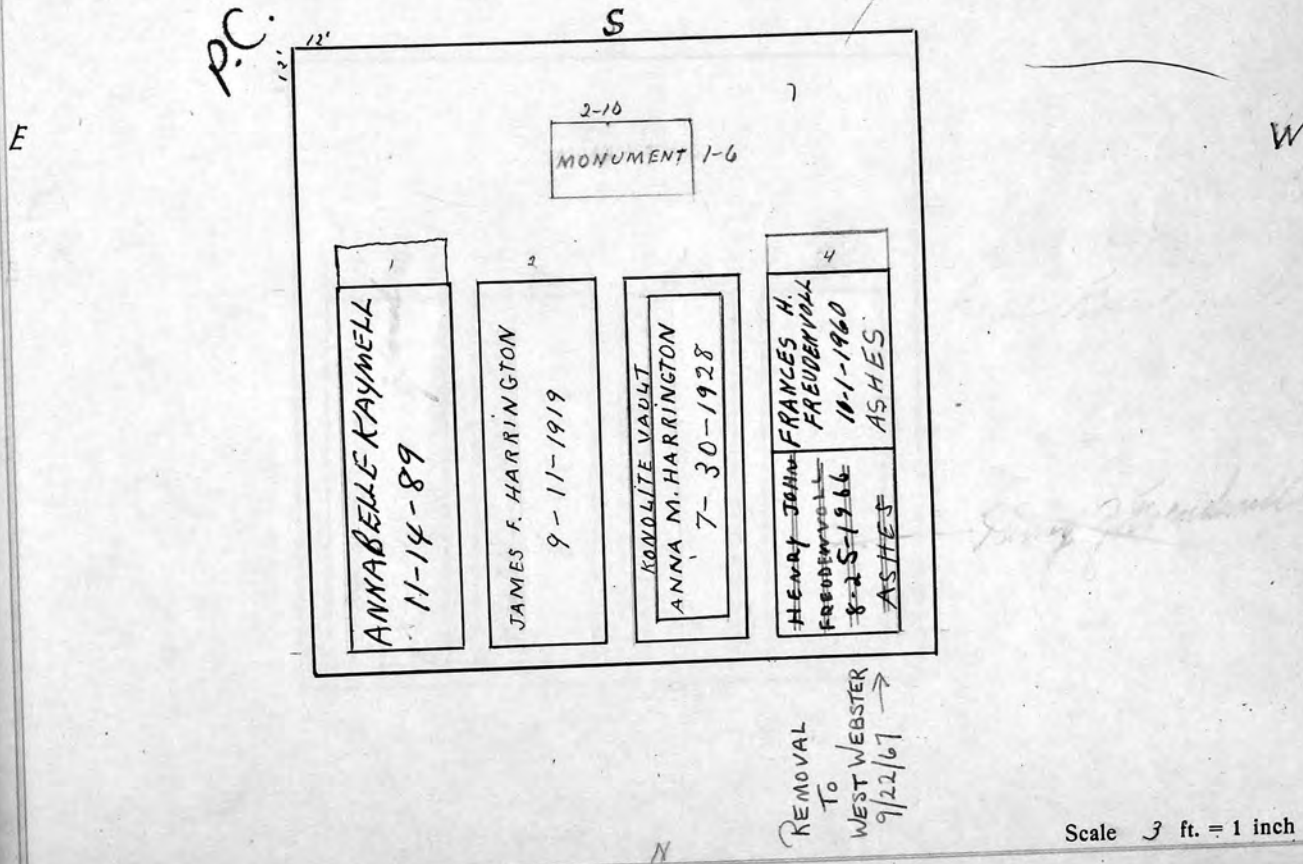 P.C.
12'
12'
S
E
W
2-10
MONUMENT 1-6
7
1
ANNABELLE KAYMELL
11-14-89
2
JAMES F. HARRINGTON
9-11-1919
KONOLITE VAULT
ANNA M. HARRINGTON
7-30-1928
4
FRANCES H.
FREUDENVOLL
10-1-1960
ASHES
HENRY JOHN
FREUDENVOLL
8-25-1966
ASHES
REMOVAL
TO
WEST WEBSTER
9/22/67 →
N
Scale 3 ft. = 1 inch